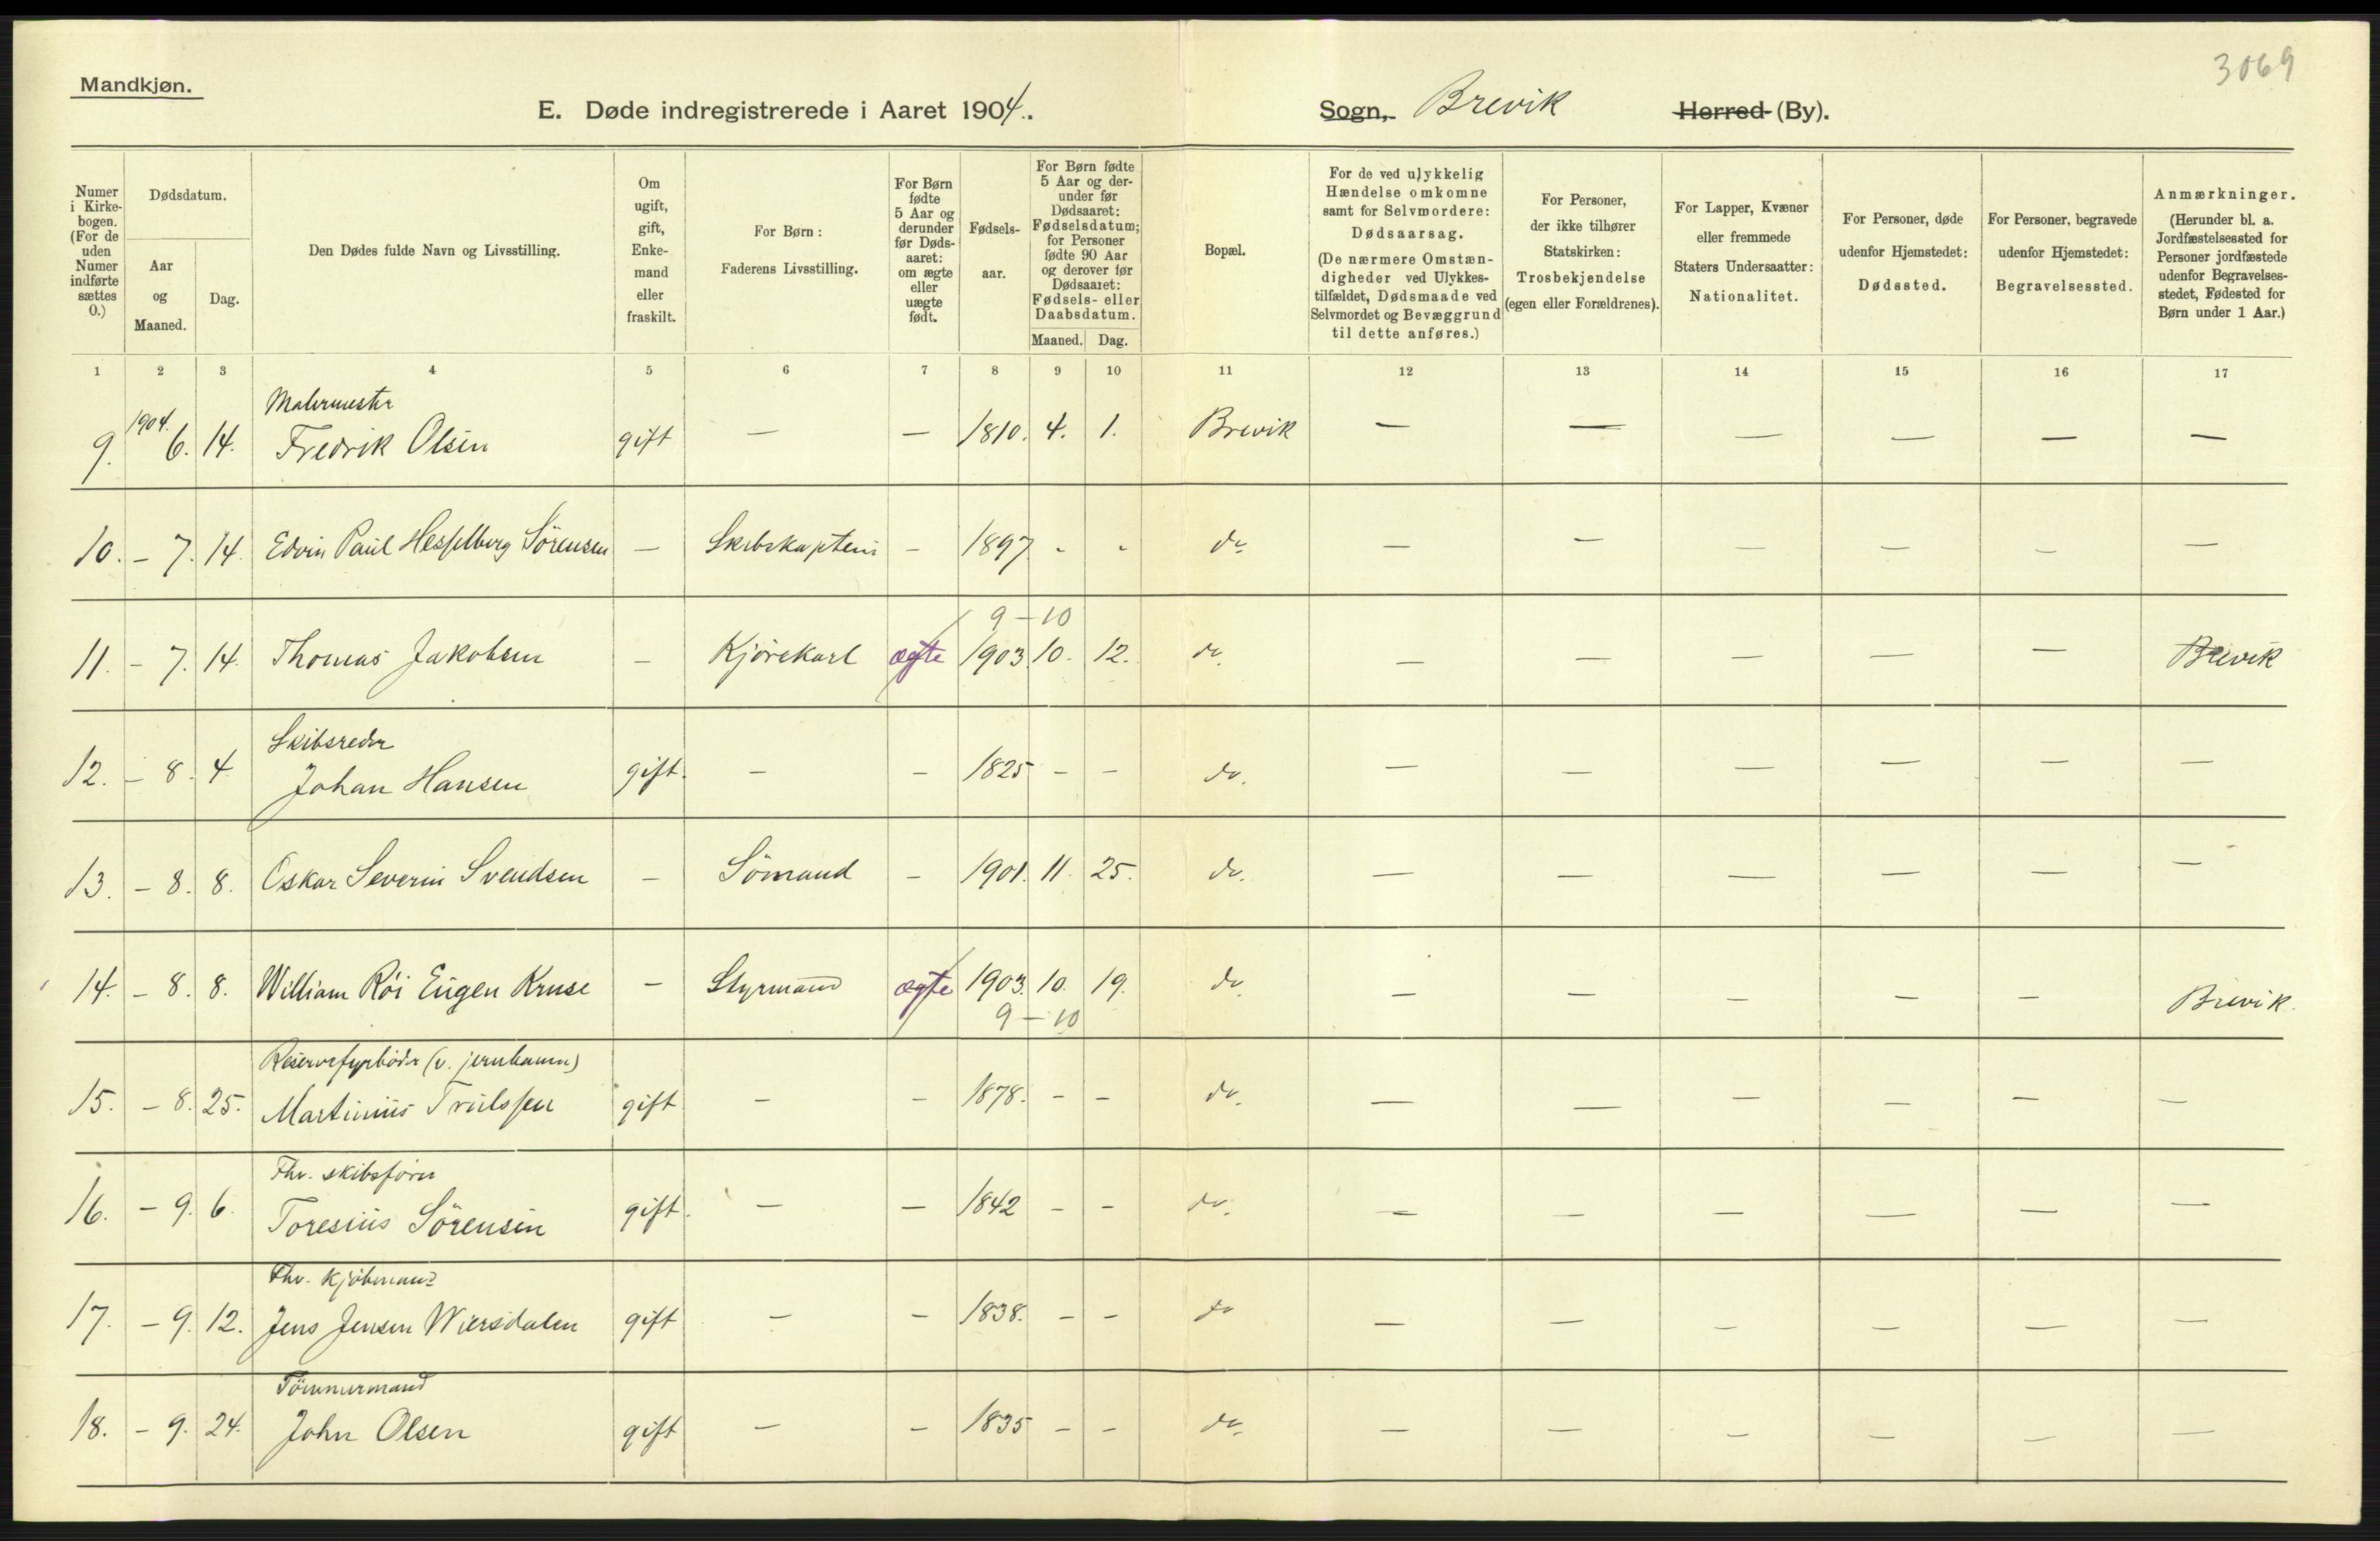 3069
Mandkjøn.
E. Døde indregistrerede i Aaret 1904.
Sogn, Brevik Herred (By).
Numer i Kirkebogen. (For de uden Numer indførte sættes 0.)
Dødsdatum.
Aar og Maaned.
Dag.
Den Dødes fulde Navn og Livsstilling.
Om ugift, gift, Enkemand eller fraskilt.
For Børn: Faderens Livsstilling.
For Børn fødte 5 Aar og derunder før Dødsaaret: om ægte eller uægte født.
Fødselsaar.
For Børn fødte 5 Aar og derunder før Dødsaaret: Fødselsdatum; for Personer fødte 90 Aar og derover før Dødsaaret: Fødsels- eller Daabsdatum.
Maaned. Dag.
Bopæl.
For de ved ulykkelig Hændelse omkomne samt for Selvmordere: Dødsaarsag. (De nærmere Omstændigheder ved Ulykkestilfældet, Dødsmaade ved Selvmordet og Bevæggrund til dette anføres.)
For Personer, der ikke tilhører Statskirken: Trosbekjendelse (egen eller Forældrenes).
For Lapper, Kvæner eller fremmede Staters Undersaatter: Nationalitet.
For Personer, døde udenfor Hjemstedet: Dødssted.
For Personer, begravede udenfor Hjemstedet: Begravelsessted.
Anmærkninger. (Herunder bl. a. Jordfæstelsessted for Personer jordfæstede udenfor Begravelsesstedet, Fødested for Børn under 1 Aar.)
1 2 3 4 5 6 7 8 9 10 11 12 13 14 15 16 17
Malermester
9. 1904. 6. 14. Fredrik Olsen gift — — 1810. 4. 1. Brevik — — — — — —
10. – 7. 14. Edvin Paul Hesselberg Sörensen — Skibskaptein – 1897 - - do — — — — — —
9 – 10
11. – 7. 14. Thomas Jakobsen – Kjörekarl ægte 1903. 10. 12. do. — — — — — Brevik
Skibsreder
12. – 8. 4. Johan Hansen gift. – – 1825 – – do. — — — — — —
13. – 8. 8. Oskar Severin Svendsen – Sömand – 1901. 11. 25. do. — — — — — —
14. – 8. 8. William Röi Eugen Kruse – Styrmand ægte 1903. 10. 19. do. — — — — — Brevik.
9 – 10
Reservefyrböder (v. jernbanen)
15. – 8. 25. Martinius Trulssen gift – – 1878. – – do. — — — — — —
Fhv. skibsförer
16. – 9. 6. Toresius Sörensen gift. – – 1842 – – do. — — — — — —
Fhv. kjöbmand
17. – 9. 12. Jens Jensen Wiersdalen gift – – 1838. – – do — — — — — —
Tömmermand
18. – 9. 24. John Olsen gift – – 1835 – – do. — — — — — —